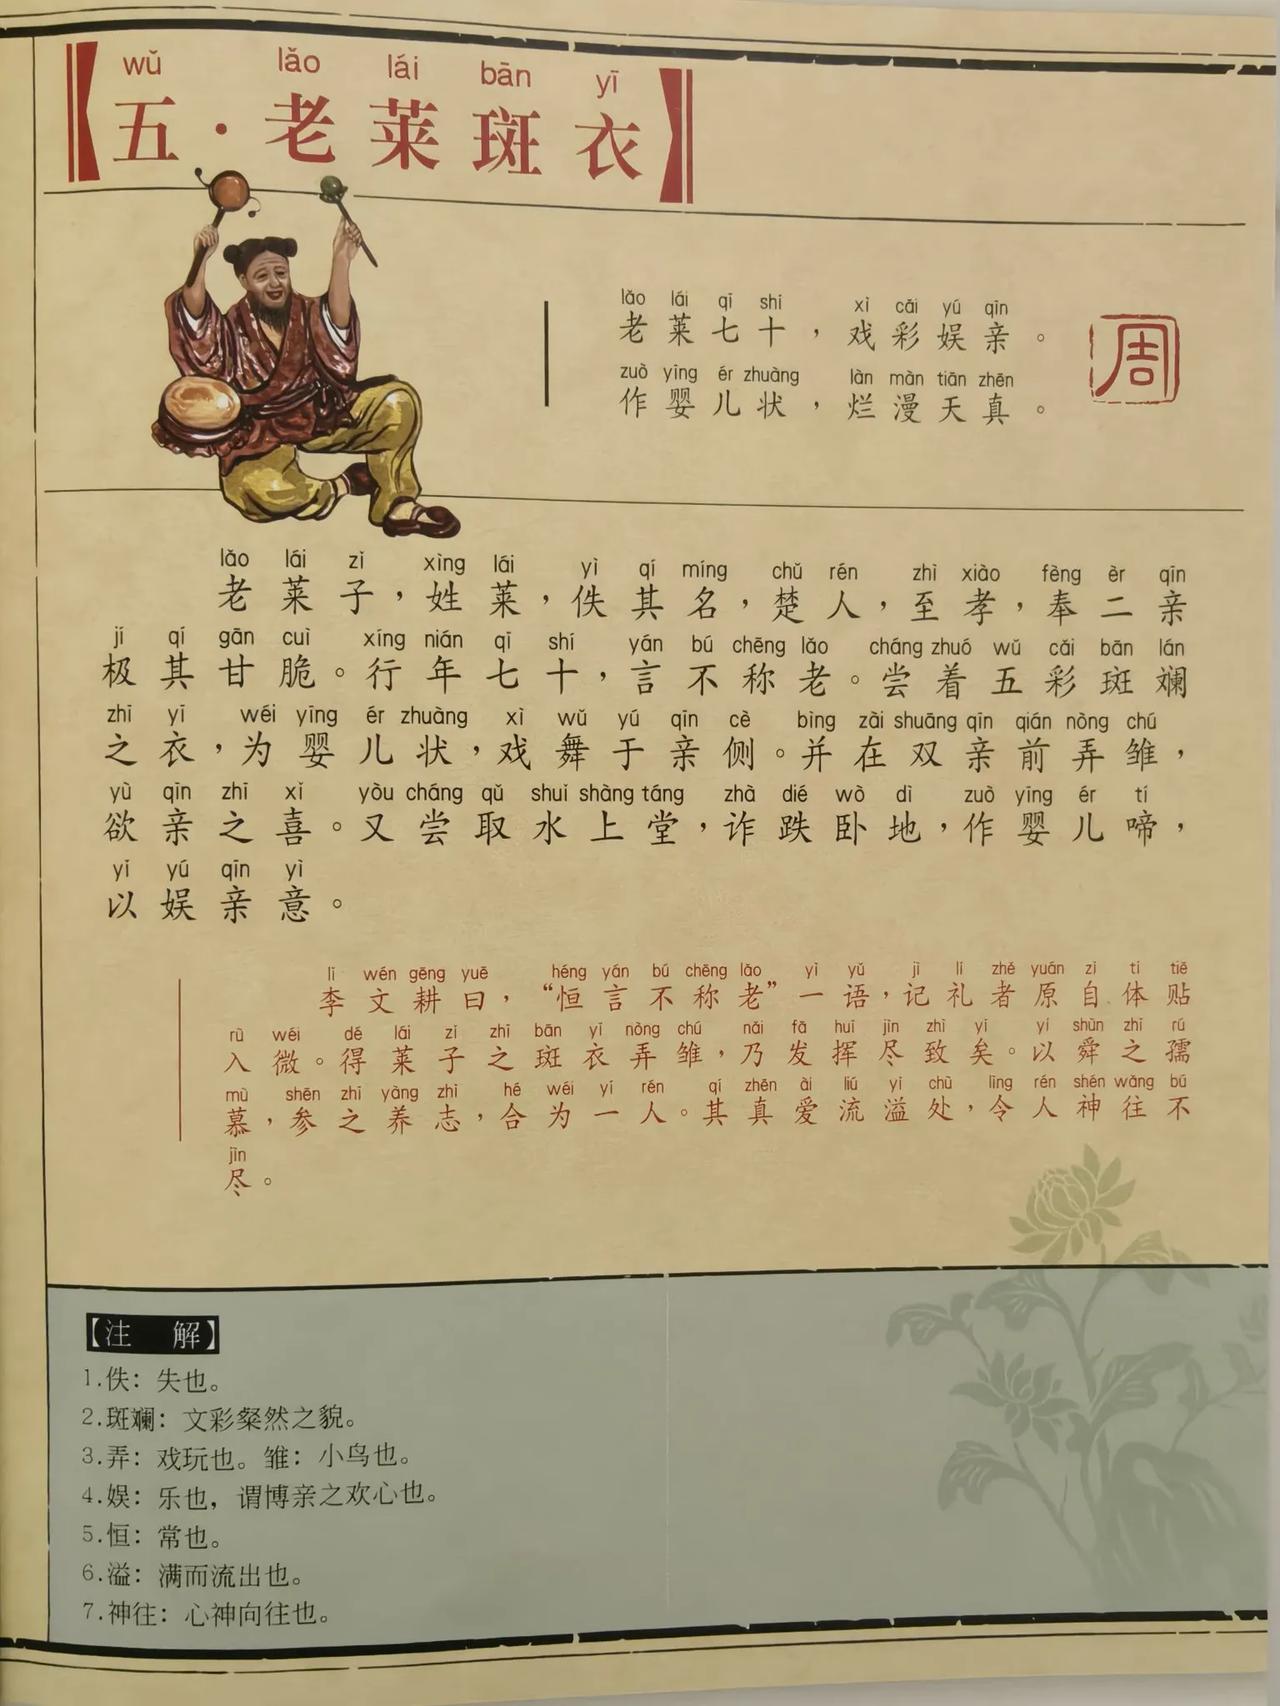 wǔ lǎo lái bān yī
【五·老莱斑衣】
lǎo lái qī shí xì cǎi yú qīn
老莱七十，戏彩娱亲。
zuò yīng ér zhuàng làn màn tiān zhēn
作婴儿状，烂漫天真。
周
lǎo lái zǐ xìng lái yì qí míng chǔ rén zhì xiào fèng èr qīn
老莱子，姓莱，佚其名，楚人，至孝，奉二亲
jí qí gān cuì xíng nián qī shí yán bú chēng lǎo cháng zhuó wǔ cǎi bān lán
极其甘脆。行年七十，言不称老。尝着五彩斑斓
zhī yī wéi yīng ér zhuàng xì wǔ yú qīn cè bìng zài shuāng qīn qián nòng chú
之衣，为婴儿状，戏舞于亲侧。并在双亲前弄雏，
yù qīn zhī xǐ yòu cháng qǔ shuǐ shàng táng zhà dié wò dì zuò yīng ér tí
欲亲之喜。又尝取水上堂，诈跌卧地，作婴儿啼，
yǐ yú qīn yì
以娱亲意。
lǐ wén gēng yuē héng yán bú chēng lǎo yì yǔ jì lǐ zhě yuán zì tǐ tiē
李文耕曰，“恒言不称老”一语，记礼者原自体贴
rù wēi dé lái zǐ zhī bān yī nòng chú nǎi fā huī jìn zhì yǐ yǐ shùn zhī rú
入微。得莱子之斑衣弄雏，乃发挥尽致矣。以舜之孺
mù shēn zhī yǎng zhì hé wéi yí rén qí zhēn ài liú yì chù lìng rén shén wǎng bú
慕，参之养志，合为一人。其真爱流溢处，令人神往不
jìn
尽。
【注 解】
1.佚：失也。
2.斑斓：文彩粲然之貌。
3.弄：戏玩也。雏：小鸟也。
4.娱：乐也，谓博亲之欢心也。
5.恒：常也。
6.溢：满而流出也。
7.神往：心神向往也。